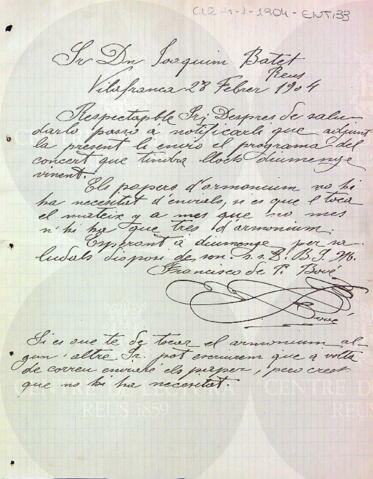 C12-4-1-1904-ENT/33
Sr Dn Joaquim Batet
Reus
Vilafranca 28 Febrer 1904
Respectapble Sr; Despres de salu-
darlo passo a notificarli que adjunt
la present li envio el programa del
concert que tindra lloch diumenge
vinent.
Els papers d'armonium no hi
ha necesitat d'envials, si es que l toca
el mateix y a mes que no mes
n'hi ha que tres d'armonium.
Esperant á diumenge per sa-
ludals disposi de son s.s.
Francisco de P. Bové
Bové
Si es que te de tocar el armonium al-
gun altre Sr. pot escriurem que a volta
de correu enviaré els paper, pero crech
que no hi ha necesitat.
CENTRE DE
REUS 1859